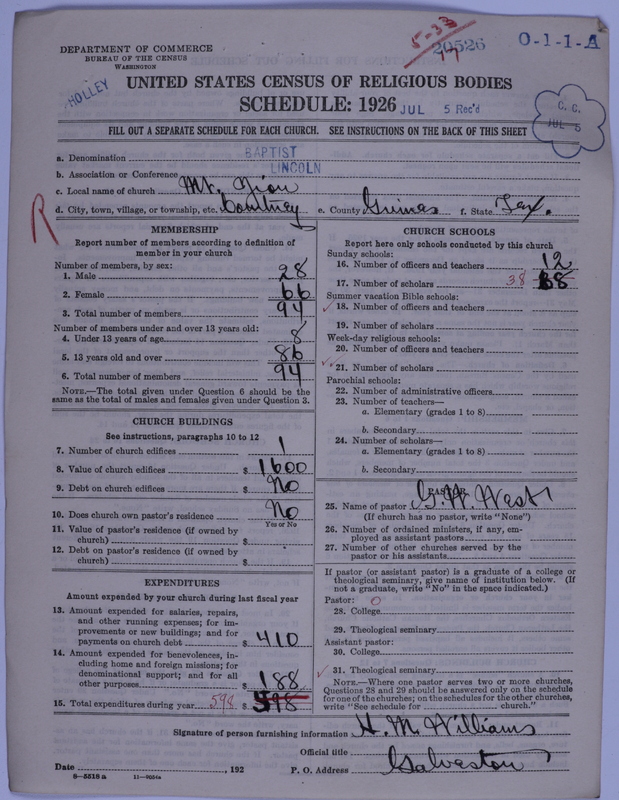 5-33
17
20526
0-1-1-A
DEPARTMENT OF COMMERCE
BUREAU OF THE CENSUS
WASHINGTON
HOLLEY
UNITED STATES CENSUS OF RELIGIOUS BODIES
SCHEDULE: 1926
JUL 5 Rec'd
C. C.
JUL 5
FILL OUT A SEPARATE SCHEDULE FOR EACH CHURCH. SEE INSTRUCTIONS ON THE BACK OF THIS SHEET
a. Denomination BAPTIST
b. Association or Conference LINCOLN
c. Local name of church Mt. Zion
d. City, town, village, or township, etc. Courtney e. County Grimes f. State Tex.
R
MEMBERSHIP
Report number of members according to definition of
member in your church
Number of members, by sex:
1. Male 28
2. Female 66
3. Total number of members 94
Number of members under and over 13 years old:
4. Under 13 years of age 8
5. 13 years old and over 86
6. Total number of members 94
NOTE.—The total given under Question 6 should be the
same as the total of males and females given under Question 3.
CHURCH BUILDINGS
See instructions, paragraphs 10 to 12
7. Number of church edifices 1
8. Value of church edifices $ 1600
9. Debt on church edifices $ No
10. Does church own pastor's residence No
Yes or No
11. Value of pastor's residence (if owned by
church) $
12. Debt on pastor's residence (if owned by
church) $
EXPENDITURES
Amount expended by your church during last fiscal year
13. Amount expended for salaries, repairs,
and other running expenses; for im-
provements or new buildings; and for
payments on church debt $ 410
14. Amount expended for benevolences, in-
cluding home and foreign missions; for
denominational support; and for all
other purposes $ 188
15. Total expenditures during year 598 $ 598
CHURCH SCHOOLS
Report here only schools conducted by this church
Sunday schools:
16. Number of officers and teachers 12
17. Number of scholars 38 38
Summer vacation Bible schools:
18. Number of officers and teachers
19. Number of scholars
Week-day religious schools:
20. Number of officers and teachers
21. Number of scholars
Parochial schools:
22. Number of administrative officers
23. Number of teachers—
a. Elementary (grades 1 to 8)
b. Secondary
24. Number of scholars—
a. Elementary (grades 1 to 8)
b. Secondary
PASTOR
25. Name of pastor G. W. West
(If church has no pastor, write "None")
26. Number of ordained ministers, if any, em-
ployed as assistant pastors
27. Number of other churches served by the
pastor or his assistants
If pastor (or assistant pastor) is a graduate of a college or
theological seminary, give name of institution below. (If
not a graduate, write "No" in the space indicated.)
Pastor: 0
28. College
29. Theological seminary
Assistant pastor:
30. College
31. Theological seminary
NOTE.—Where one pastor serves two or more churches,
Questions 28 and 29 should be answered only on the schedule
for one of the churches; on the schedules for the other churches,
write "See schedule for church."
Signature of person furnishing information H. M. Williams
Official title
Date , 192 P. O. Address Galveston
8—5518 a 11—9034a